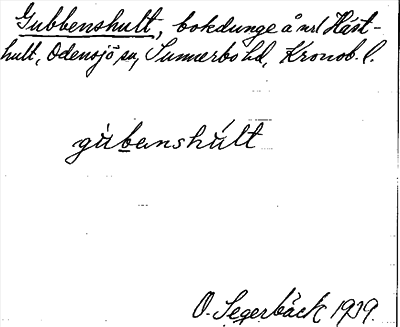 Gubbenshult, bokdunge å nr1 Häst-
hult, Odensjö sn, Sunnerbo hd, Kronob. l.
gùbanshúlt
O. Segerbäck 1939.